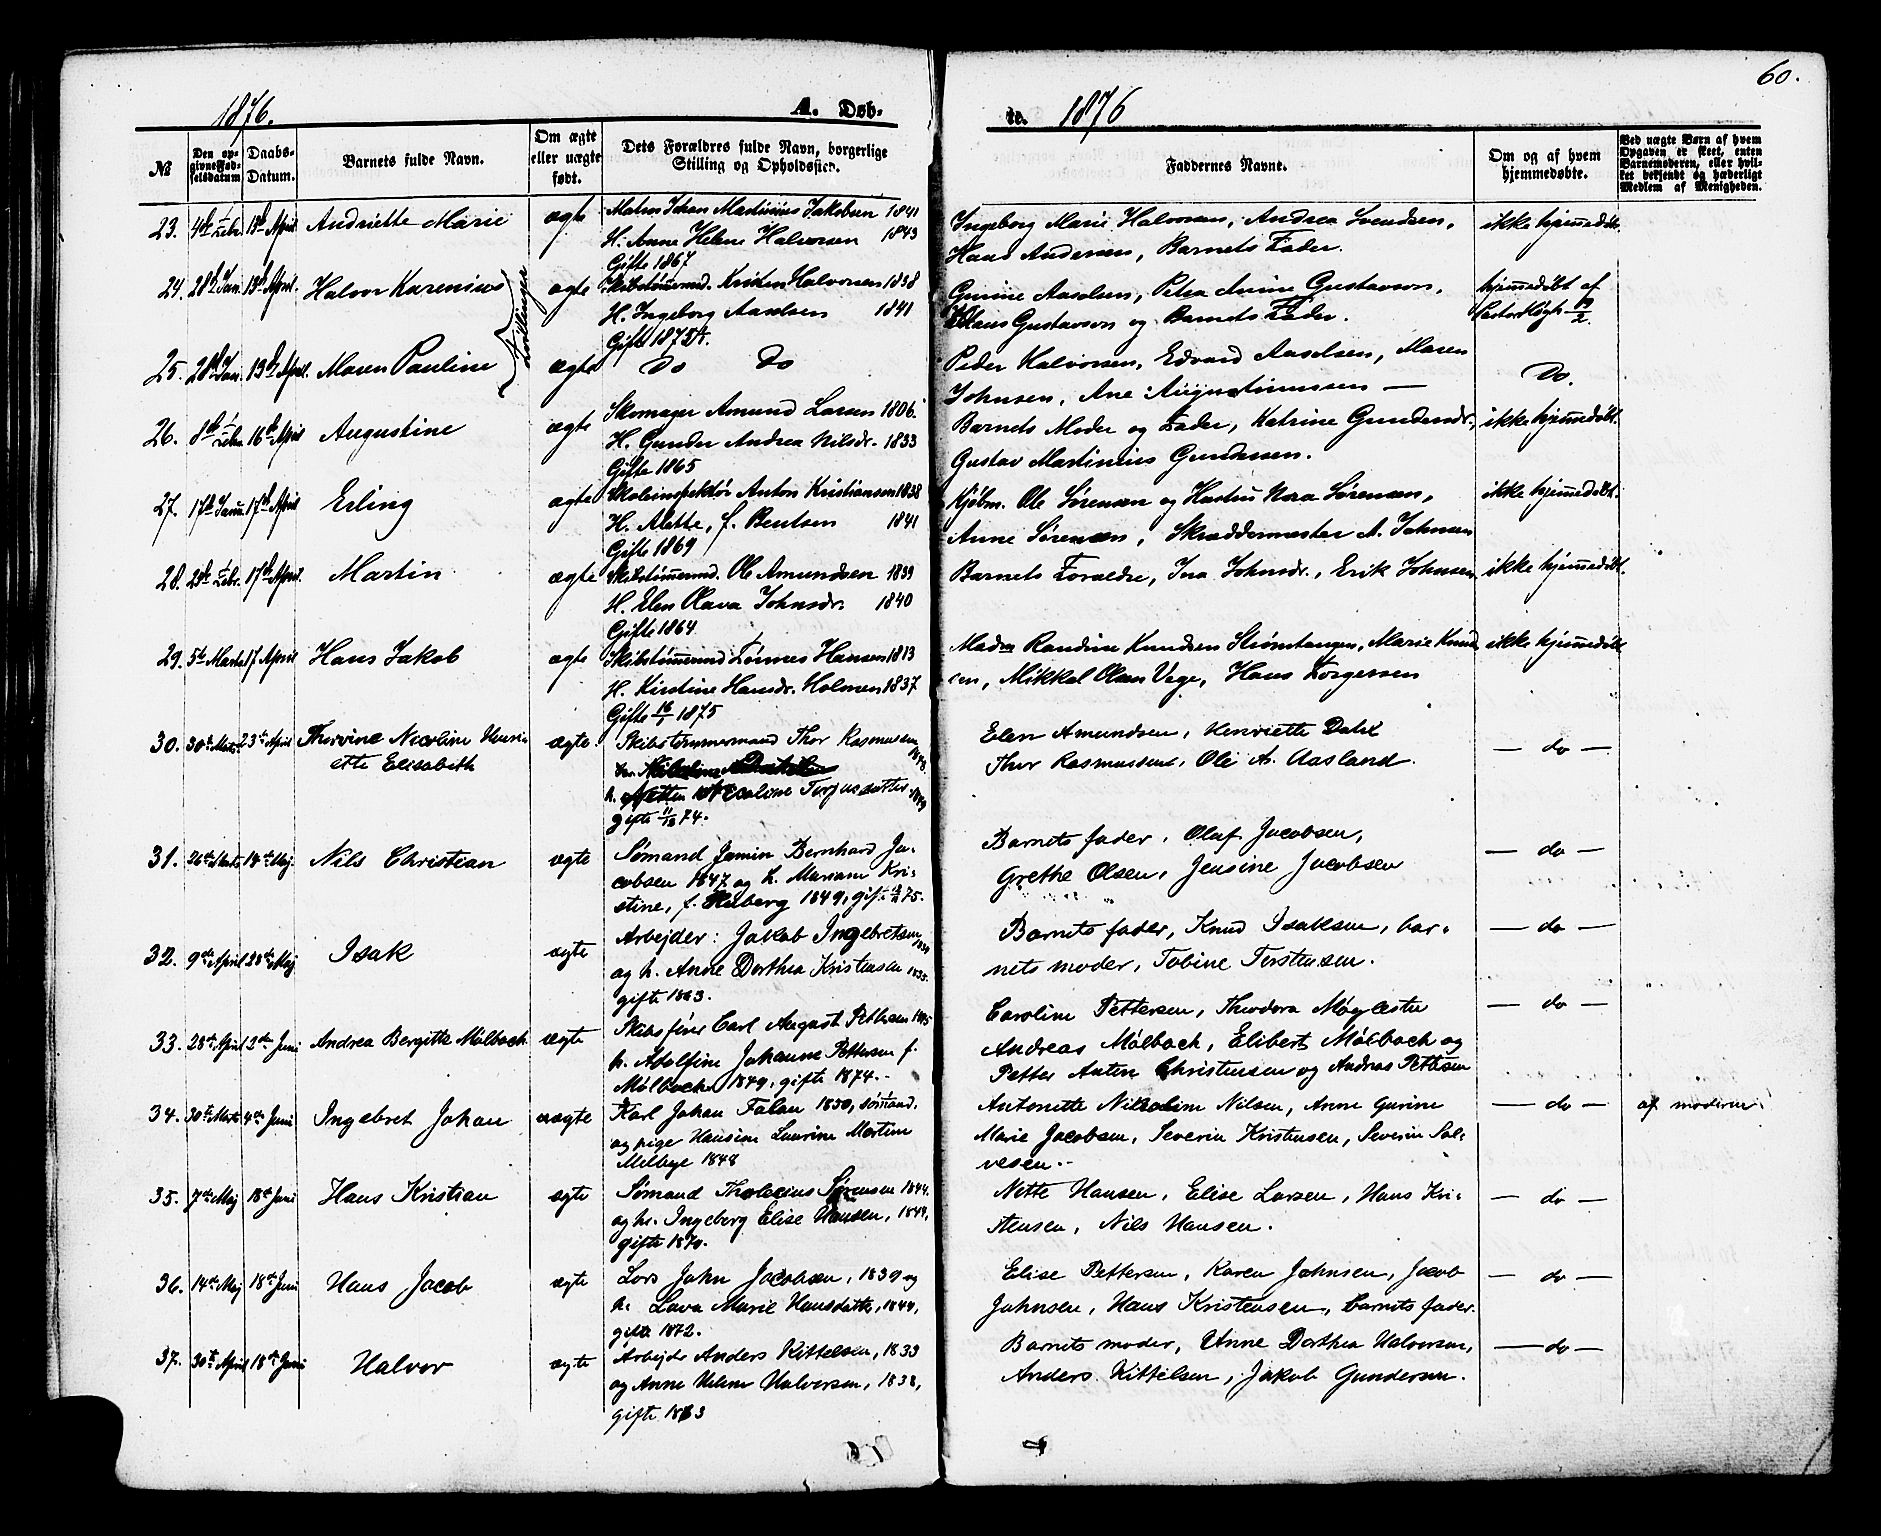 1876.
A. Døb-
te. 1876
60.
№
Den opgivne Fødselsdatum
Daabs-Datum.
Barnets fulde Navn.
Om ægte eller uægte født.
Dets Forældres fulde Navn, borgerlige Stilling og Opholdssted.
Faddernes Navne.
Om og af hvem hjemmedøbte.
Ved uægte Børn af hvem Opgaven er skeet, enten Barnemoderen, eller hvilket bekjendt og hæderligt Medlem af Menigheden.
23. 4de Febr. 13de April. Andriette Marie ægte Johan Martinius Jakobsen 1841 Ingeborg Marie Halvorsen, Andrea Svendsen, ikke hjemmedøbt.
H. Anne Helene Halvorsen 1843 Hans Andersen, Barnets Fader.
Gifte 1867
24. 28de Jan. 13de April. Halvor Karenius Tvillinger ægte Skibstømmermd. Kristen Halvorsen 1838 Gurine Aaselsen, Petra Anine Gustavson, hjemmedøbt af
H. Ingeborg Aaselsen 1841 Hans Gustavson og Barnets Fader.
Gifte 1875
25. 28de Jan. 13de April. Maren Pauline ægte Do Do Peder Halvorsen, Edvard Aaselsen, Maren Do.
Johnsen, Ane Augustinussen —
26. 8de Febr. 16de April Augustine ægte Skomager Amund Larsen 1806. Barnets Moder og Fader, Katrine Gundersdr., ikke hjemmedøbt.
H. Gunder Andrea Nilsdr. 1833 Gustav Martinius Gundersen.
Gifte 1865
27. 17de Janu. 17de April Erling ægte Skoleinspektør Anton Kristiansen 1838 Kjøbm. Ole Sørensen og Hustru Nora Sørensen, ikke hjemmedøbt.
H. Alette, f. Bentsen 1841 Anne Sørensen, Skræddermester A. Johnsen
Gifte 1869
28. Febr. 17de April. Martin ægte Skibstømmermd. Ole Amundsen 1839 Barnets Forældre, Ina Johnsdr., Erik Johnsen. ikke hjemmedøbt.
H. Elen Olava Johnsdr. 1840
Gifte 1864
29. 5te Marts 17 April Hans Jakob ægte Skibstømmermd Tønnes Hansen 1813 Madm Randine Knudsen Strømtangen, Marie Knud- ikke hjemmedøbt
H. Kirstine Hansdr. Holmen 1837 sen, Mikkal Olsen Vege, Hans Torgersen
Gifte 16/1 1875
30. 30te Marts 23de April Thorvine Nicoline Henri- ægte Skibstømmermand Thor Rasmussen 1848. Elen Amundsen, Henriette Dahl — do —
ette Elisabeth Thor Rasmussen, Ole A. Aasland.
h. Nicoline Terjesdatter 1849
gifte 11/12 74.
31. 26de Marts 14de Maj Nils Christian ægte Sømand Jamin Bernhard Ja- Barnets fader, Oluf Jacobsen, — do —
cobsen 1847 og h. Mariane Kri- Grethe Olsen, Jensine Jacobsen
stine, f. Heiberg 1849, gift 75.
32. 9de April 28de Maj Isak ægte Arbejder: Jakob Ingebretsen Barnets fader, Knud Isaksen, bar- — do —
og h. Anne Dorthea Kristensen 1835. nets moder, Tobine Terstensen.
gifte 1863.
33. 28de April 2den Juni Andrea Bergitte Mølbach ægte Skibsfører Carl August Pettersen 1845 Caroline Pettersen, Theodora Møglestu — do —
h. Adolfine Johanne Pettersen f. Andreas Mølbach, Elibert Mølbach og
Mølbach 1849, gifte 1874. Petter Anton Christensen og Andreas Pettersen
34. 30te Marts 4de Juni Ingebret Johan uægte Karl Johan Falan 1850, sømand, Antonette Nikoline Nilsen, Anne Gurine — do — af moderen.
og pige Hansine Laurine Martine Marie Jacobsen, Severin Kristensen, Severin Sal-
Melbye 1848 vesen.
35. 7de Maj 18de Juni Hans Kristian ægte Sømand Tholecius Sørensen 1844. Nette Hansen, Elise Larsen, Hans Kri- — do —
og h. Ingeborg Elise Hansen, 1849, stensen, Nils Hansen.
gifte 1870.
36. 14de Maj 18de Juni Hans Jacob ægte Lods John Jacobsen, 1839 og Elise Pettersen, Karen Johnsen, Jacob — do —
h. Lava Marie Hansdatter, 1844, Johnsen, Hans Kristensen, barnets fader.
gifte 1872.
37. 30te April 18de Juni Halvor ægte Arbejder Anders Kittelsen, 1833 Barnets moder, Anne Dorthea Halvorsen, — do —
og Anne Helene Halvorsen, 1838, Anders Kittelsen, Jakob Gundersen.
gifte 1863